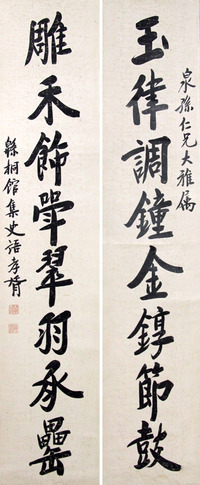 玉律調鐘金錞節鼓
泉孫仁兄大雅属
雕禾飾斝翠羽承罍
緜桐館集史語孝胥